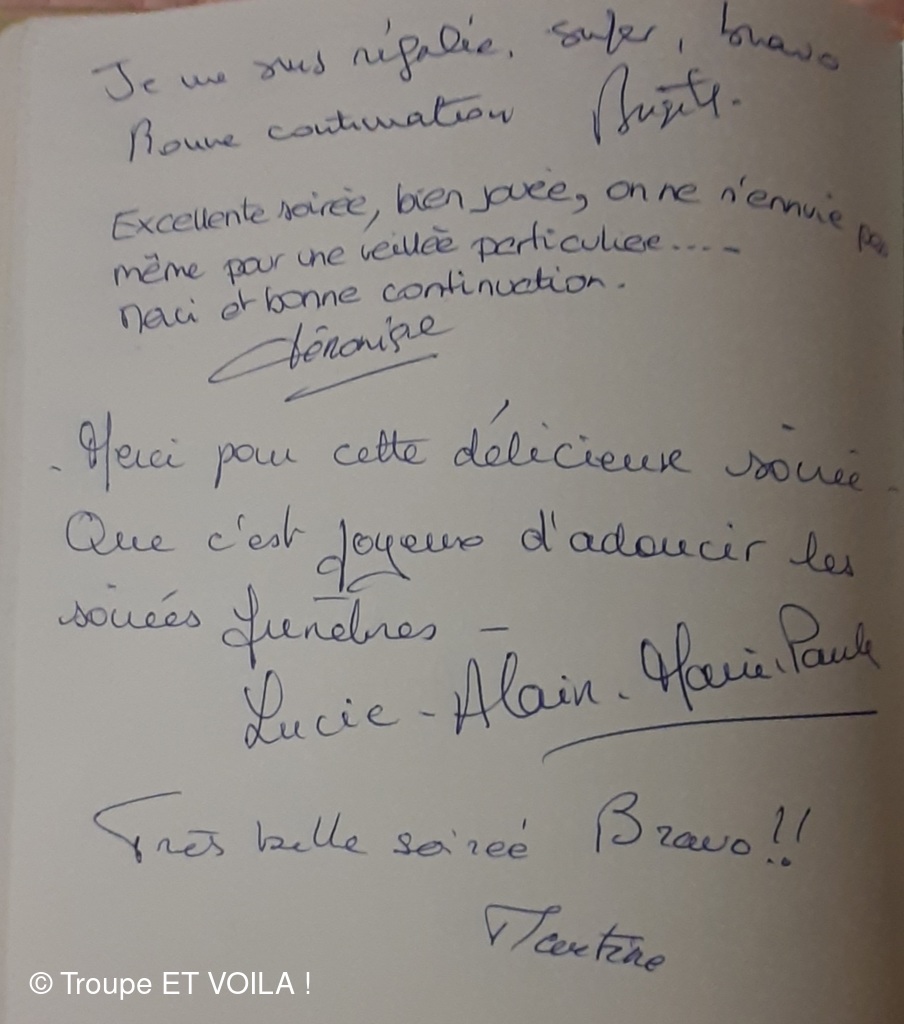 Je me suis régalée, super, bravo
Bonne continuation Brigitte.
Excellente soirée, bien jouée, on ne n'ennuie pas
même pour une veillée particulière.....
Merci et bonne continuation.
Véronique
- Merci pour cette délicieuse soirée -
Que c'est joyeux d'adoucir les
soirées funèbres -
Lucie - Alain - Marie-Paule
Très belle soirée Bravo !!
Martine
© Troupe ET VOILA !